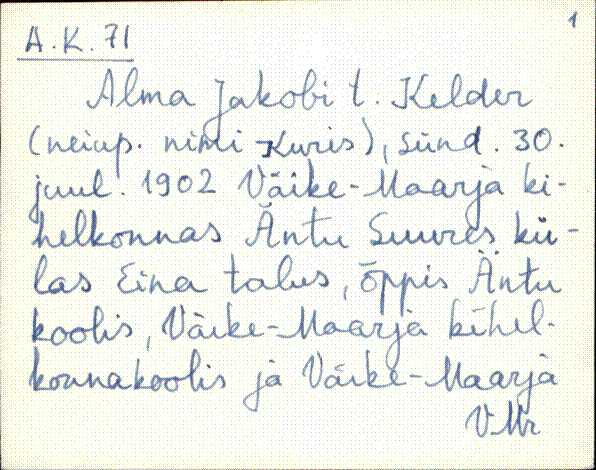 1
A.K. 71
Alma Jakobi t. Kelder
(neiup. nimi Kuris), sünd. 30.
juul. 1902 Väike-Maarja ki-
helkonnas Äntu Suures kü-
las Eina talus, õppis Äntu
koolis, Väike-Maarja kihel-
konnakoolis ja Väike-Maarja
VMr